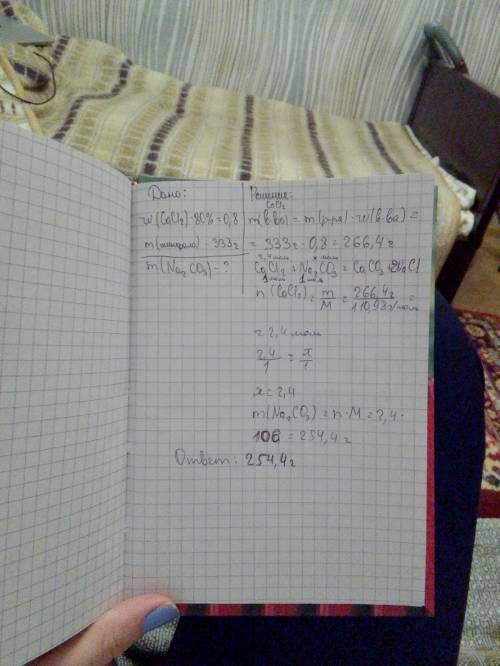 Дано:
w(CaCl2) - 80% = 0,8
m(минерала) - 333г
m(Na2CO3) - ?
Решение:
CaCl2
m(в-ва) = m(р-ра) · w(в-ва) =
= 333г · 0,8 = 266,4г
2,4 моль x моль
CaCl2 + Na2CO3 = CaCO3 + 2NaCl
1 моль 1 моль
n(CaCl2) = m/M = 266,4г / 110,98г/моль =
= 2,4 моль
2,4/1 = x/1
x = 2,4
m(Na2CO3) = n · M = 2,4 ·
106 = 254,4г
Ответ: 254,4г